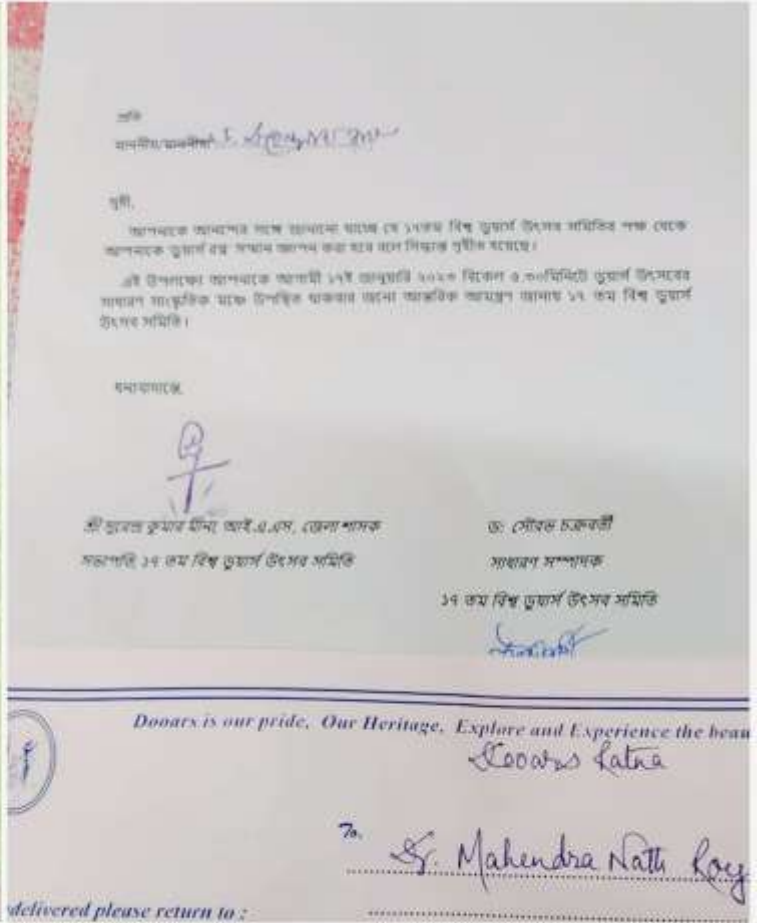 প্রতি
মাননীয়/মাননীয়া
সুধী,
আপনাকে আনন্দের সঙ্গে জানানো যাচ্ছে যে ১৭তম বিশ্ব ডুয়ার্স উৎসব সমিতির পক্ষ থেকে
আপনাকে ডুয়ার্স রত্ন সম্মান জ্ঞাপন করা হবে বলে সিদ্ধান্ত গৃহীত হয়েছে।
এই উপলক্ষ্যে আপনাকে আগামী ১৭ই জানুয়ারি ২০২৩ বিকেল ৫.৩০মিনিটে ডুয়ার্স উৎসবের
সাধারণ সাংস্কৃতিক মঞ্চে উপস্থিত থাকবার জন্যে আন্তরিক আমন্ত্রণ জানায় ১৭ তম বিশ্ব ডুয়ার্স
উৎসব সমিতি।
ধন্যবাদান্তে,
শ্রী সুরেন্দ্র কুমার মীনা, আই.এ.এস, জেলা শাসক
সভাপতি, ১৭ তম বিশ্ব ডুয়ার্স উৎসব সমিতি
ড: সৌরভ চক্রবর্তী
সাধারণ সম্পাদক
১৭ তম বিশ্ব ডুয়ার্স উৎসব সমিতি
Dooars is our pride, Our Heritage, Explore and Experience the beau
Dooars Ratna
To,
Dr. Mahendra Nath Roy
delivered please return to :